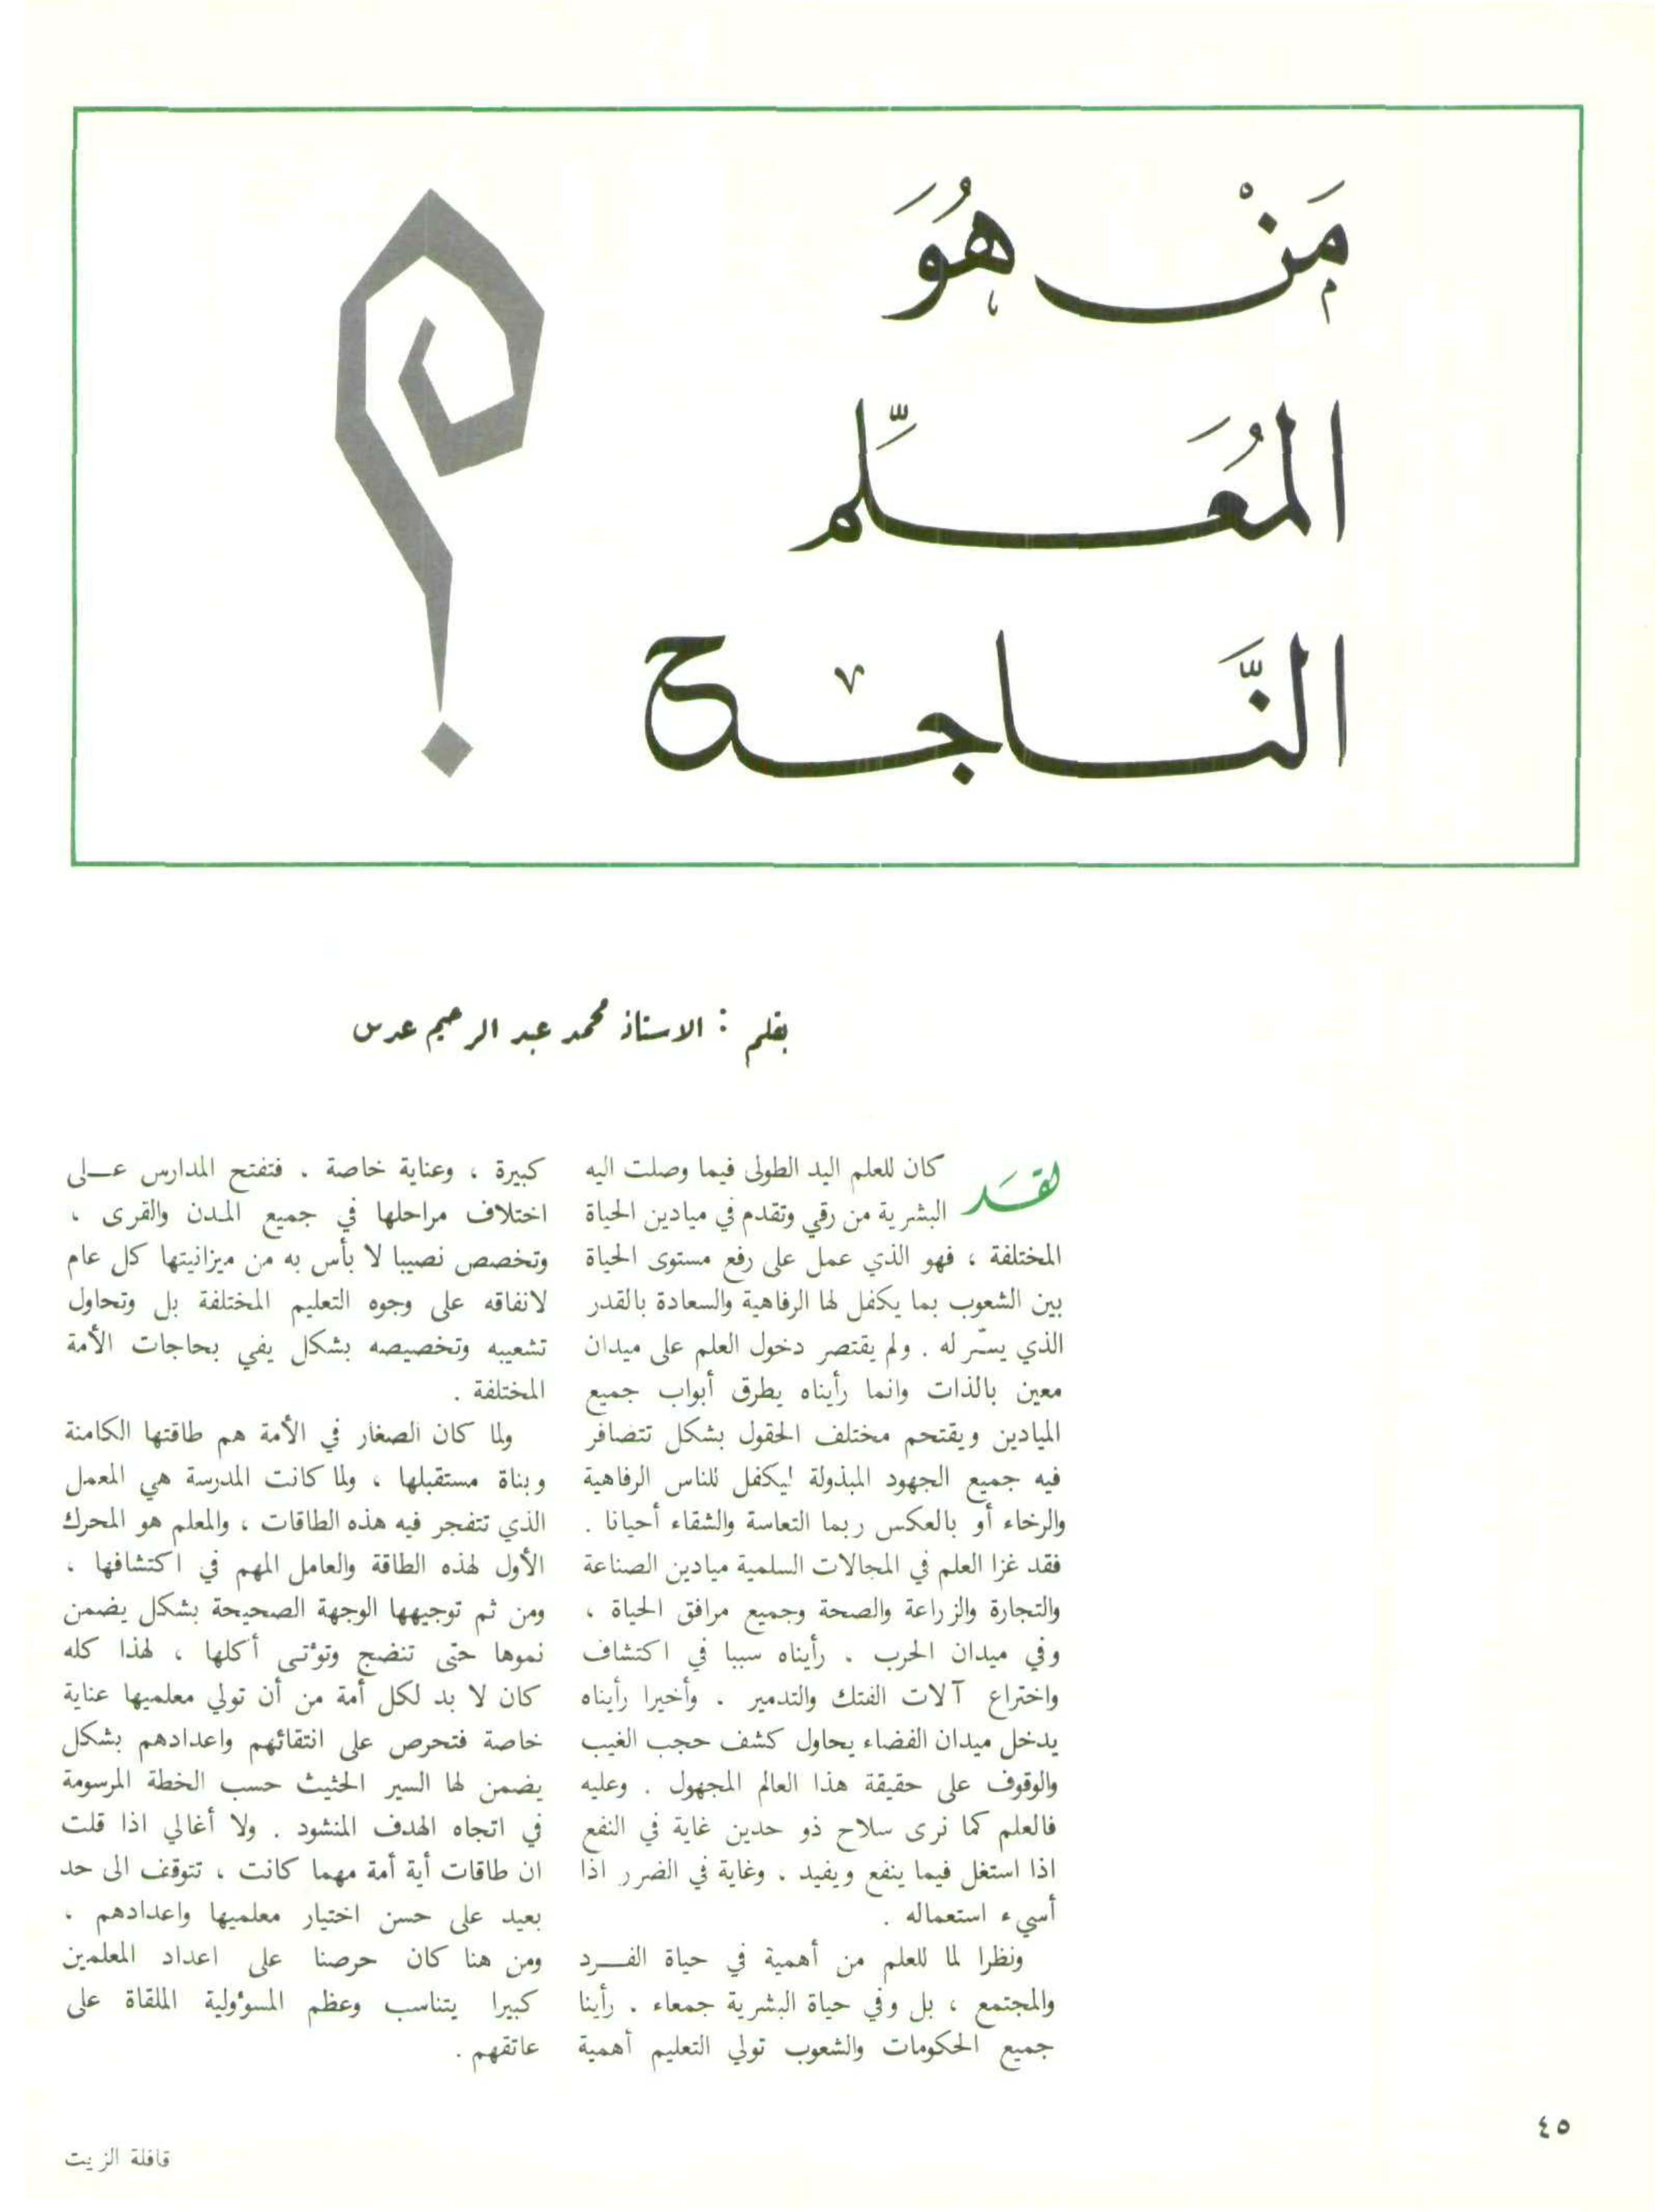 مَنْ هُوَ
المُعَلِّم
النَّاجح
؟
بقلم : الاستاذ محمد عبد الرحيم عدس
لقَد كان للعلم اليد الطولى فيما وصلت اليه
البشرية من رقي وتقدم في ميادين الحياة
المختلفة ، فهو الذي عمل على رفع مستوى الحياة
بين الشعوب بما يكفل لها الرفاهية والسعادة بالقدر
الذي يسّر له . ولم يقتصر دخول العلم على ميدان
معين بالذات وانما رأيناه يطرق أبواب جميع
الميادين ويقتحم مختلف الحقول بشكل تتضافر
فيه جميع الجهود المبذولة ليكفل للناس الرفاهية
والرخاء أو بالعكس ربما التعاسة والشقاء أحيانا .
فقد غزا العلم في المجالات السلمية ميادين الصناعة
والتجارة والزراعة والصحة وجميع مرافق الحياة ،
وفي ميدان الحرب . رأيناه سببا في اكتشاف
واختراع آلات الفتك والتدمير . وأخيرا رأيناه
يدخل ميدان الفضاء يحاول كشف حجب الغيب
والوقوف على حقيقة هذا العالم المجهول . وعليه
فالعلم كما نرى سلاح ذو حدين غاية في النفع
اذا استغل فيما ينفع ويفيد . وغاية في الضرر اذا
أسيء استعماله .
ونظرا لما للعلم من أهمية في حياة الفـرد
والمجتمع ، بل وفي حياة البشرية جمعاء . رأينا
جميع الحكومات والشعوب تولي التعليم أهمية
كبيرة ، وعناية خاصة . فتفتح المدارس عـلى
اختلاف مراحلها في جميع المدن والقرى ،
وتخصص نصيبا لا بأس به من ميزانيتها كل عام
لانفاقه على وجوه التعليم المختلفة بل وتحاول
تشعيبه وتخصيصه بشكل يفي بحاجات الأمة
المختلفة .
ولما كان الصغار في الأمة هم طاقتها الكامنة
وبناة مستقبلها ، ولما كانت المدرسة هي المعمل
الذي تتفجر فيه هذه الطاقات ، والمعلم هو المحرك
الأول لهذه الطاقة والعامل المهم في اكتشافها ،
ومن ثم توجيهها الوجهة الصحيحة بشكل يضمن
نموها حتى تنضج وتؤتى أكلها ، لهذا كله
كان لا بد لكل أمة من أن تولي معلميها عناية
خاصة فتحرص على انتقائهم واعدادهم بشكل
يضمن لها السير الحثيث حسب الخطة المرسومة
في اتجاه الهدف المنشود . ولا أغالي اذا قلت
ان طاقات أية أمة مهما كانت ، تتوقف الى حد
بعيد على حسن اختيار معلميها واعدادهم .
ومن هنا كان حرصنا على اعداد المعلمين
كبيرا يتناسب وعظم المسؤولية الملقاة على
عاتقهم .
٤٥
قافلة الزيت